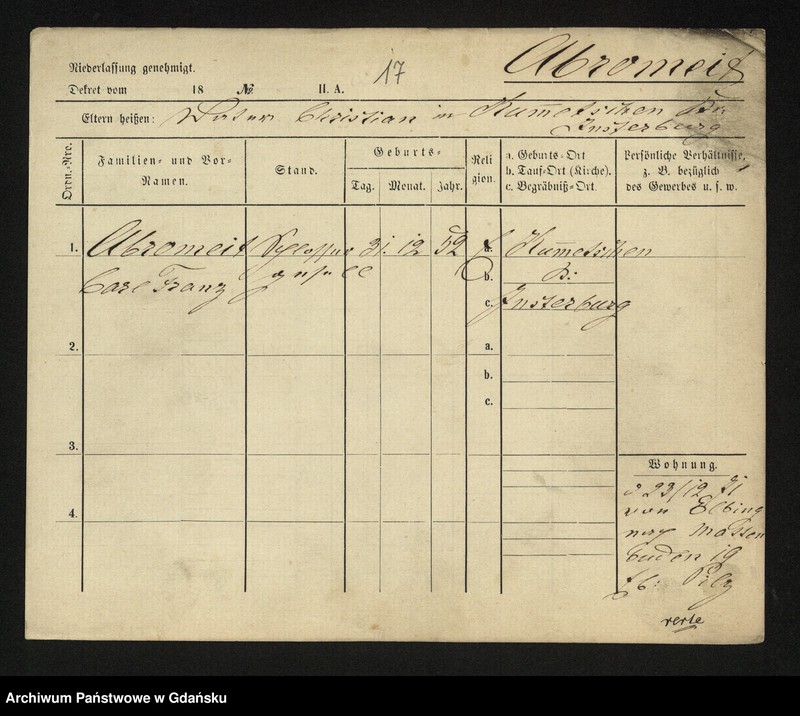 Niederlassung genehmigt.
17
Abromeit
Dekret vom 18 № II. A.
Eltern heißen: Vater Christian in Kumetschen Br:
Insterburg
Ordn.-Nro.
Familien- und Vor-
Namen.
Stand.
Geburts-
Tag. Monat. Jahr.
Reli
gion.
a. Geburts-Ort
b. Tauf-Ort (Kirche).
c. Begräbniß-Ort.
Persönliche Verhältnisse,
z. B. bezüglich
des Gewerbes u. s. w.
1. Abromeit Schlosser 31. 12 52 a. Kumetschen
Carl Franz geselle b. B:
c. Insterburg
2. a.
b.
c.
3.
Wohnung.
4.
23/12 71
von Elbing
nach Matten
buden 19
b:
verte
Archiwum Państwowe w Gdańsku